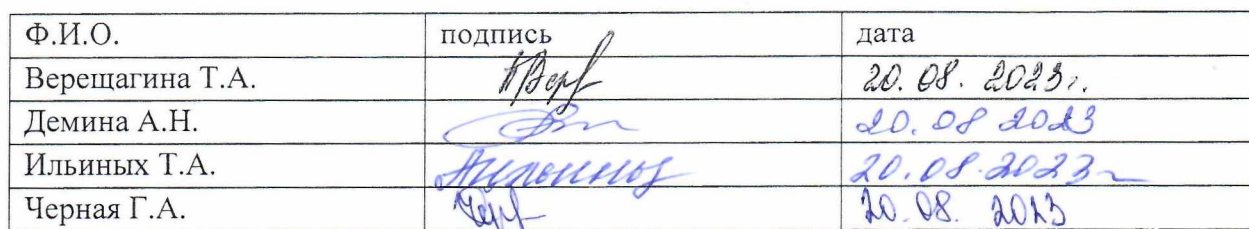 Ф.И.О. подпись дата
Верещагина Т.А. 20.08.2023г.
Демина А.Н. 20.08 2023
Ильиных Т.А. 20.08.2023г
Черная Г.А. 20.08. 2023